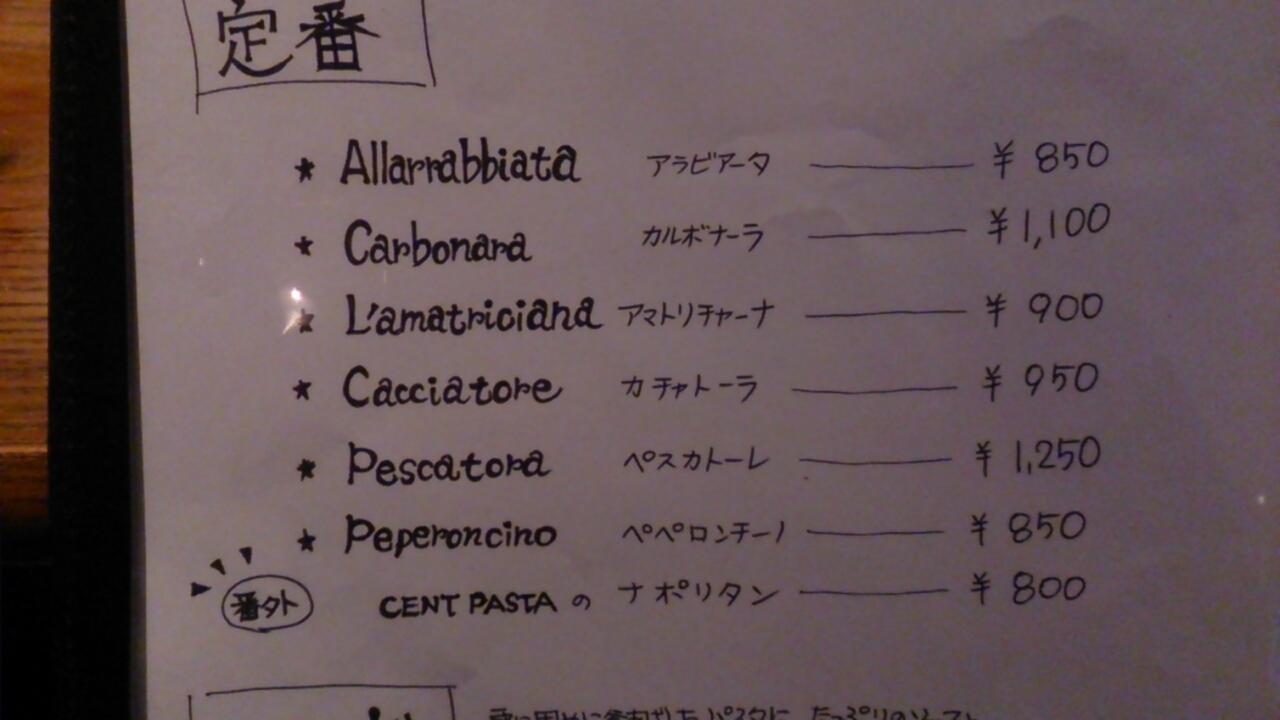 定番
★ Allarrabbiata アラビアータ ¥ 850
★ Carbonara カルボナーラ ¥1,100
★ L'amatriciana アマトリチャーナ ¥ 900
★ Cacciatore カチャトーラ ¥ 950
★ Pescatora ペスカトーレ ¥ 1,250
★ Peperoncino ペペロンチーノ ¥ 850
番外 CENT PASTA の ナポリタン ¥ 800